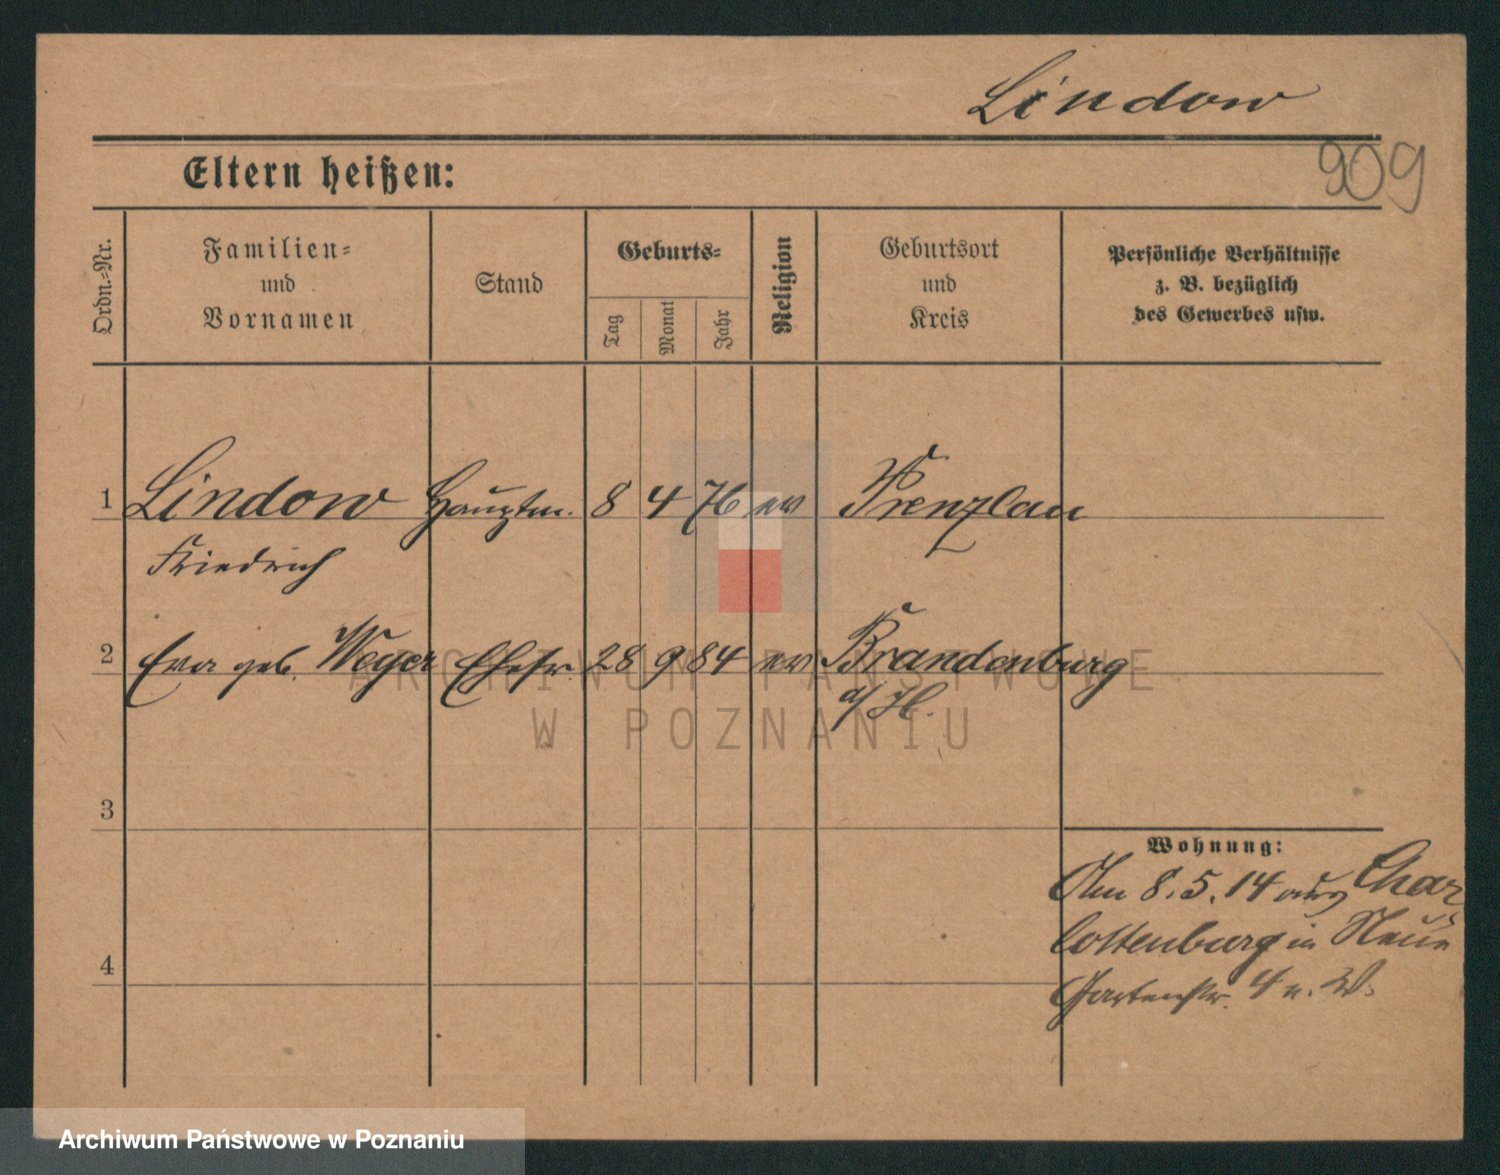 Lindow
909
Eltern heißen:
Ordn.-Nr.
Familien-
und
Vornamen
Stand
Geburts-
Tag
Monat
Jahr
Religion
Geburtsort
und
Kreis
Persönliche Verhältnisse
z. B. bezüglich
des Gewerbes usw.
1 Lindow Hauptm. 8 4 76 ev Prenzlau
Friedrich
2 Eva geb. Weyer Ehefr. 28 9 84 ev Brandenburg
a/H.
ARCHIWUM PAŃSTWOWE
W POZNANIU
3
Wohnung:
Am 8.5.14 aus Char
lottenburg in Neue
4
Gartenstr. 4 n. W.
Archiwum Państwowe w Poznaniu